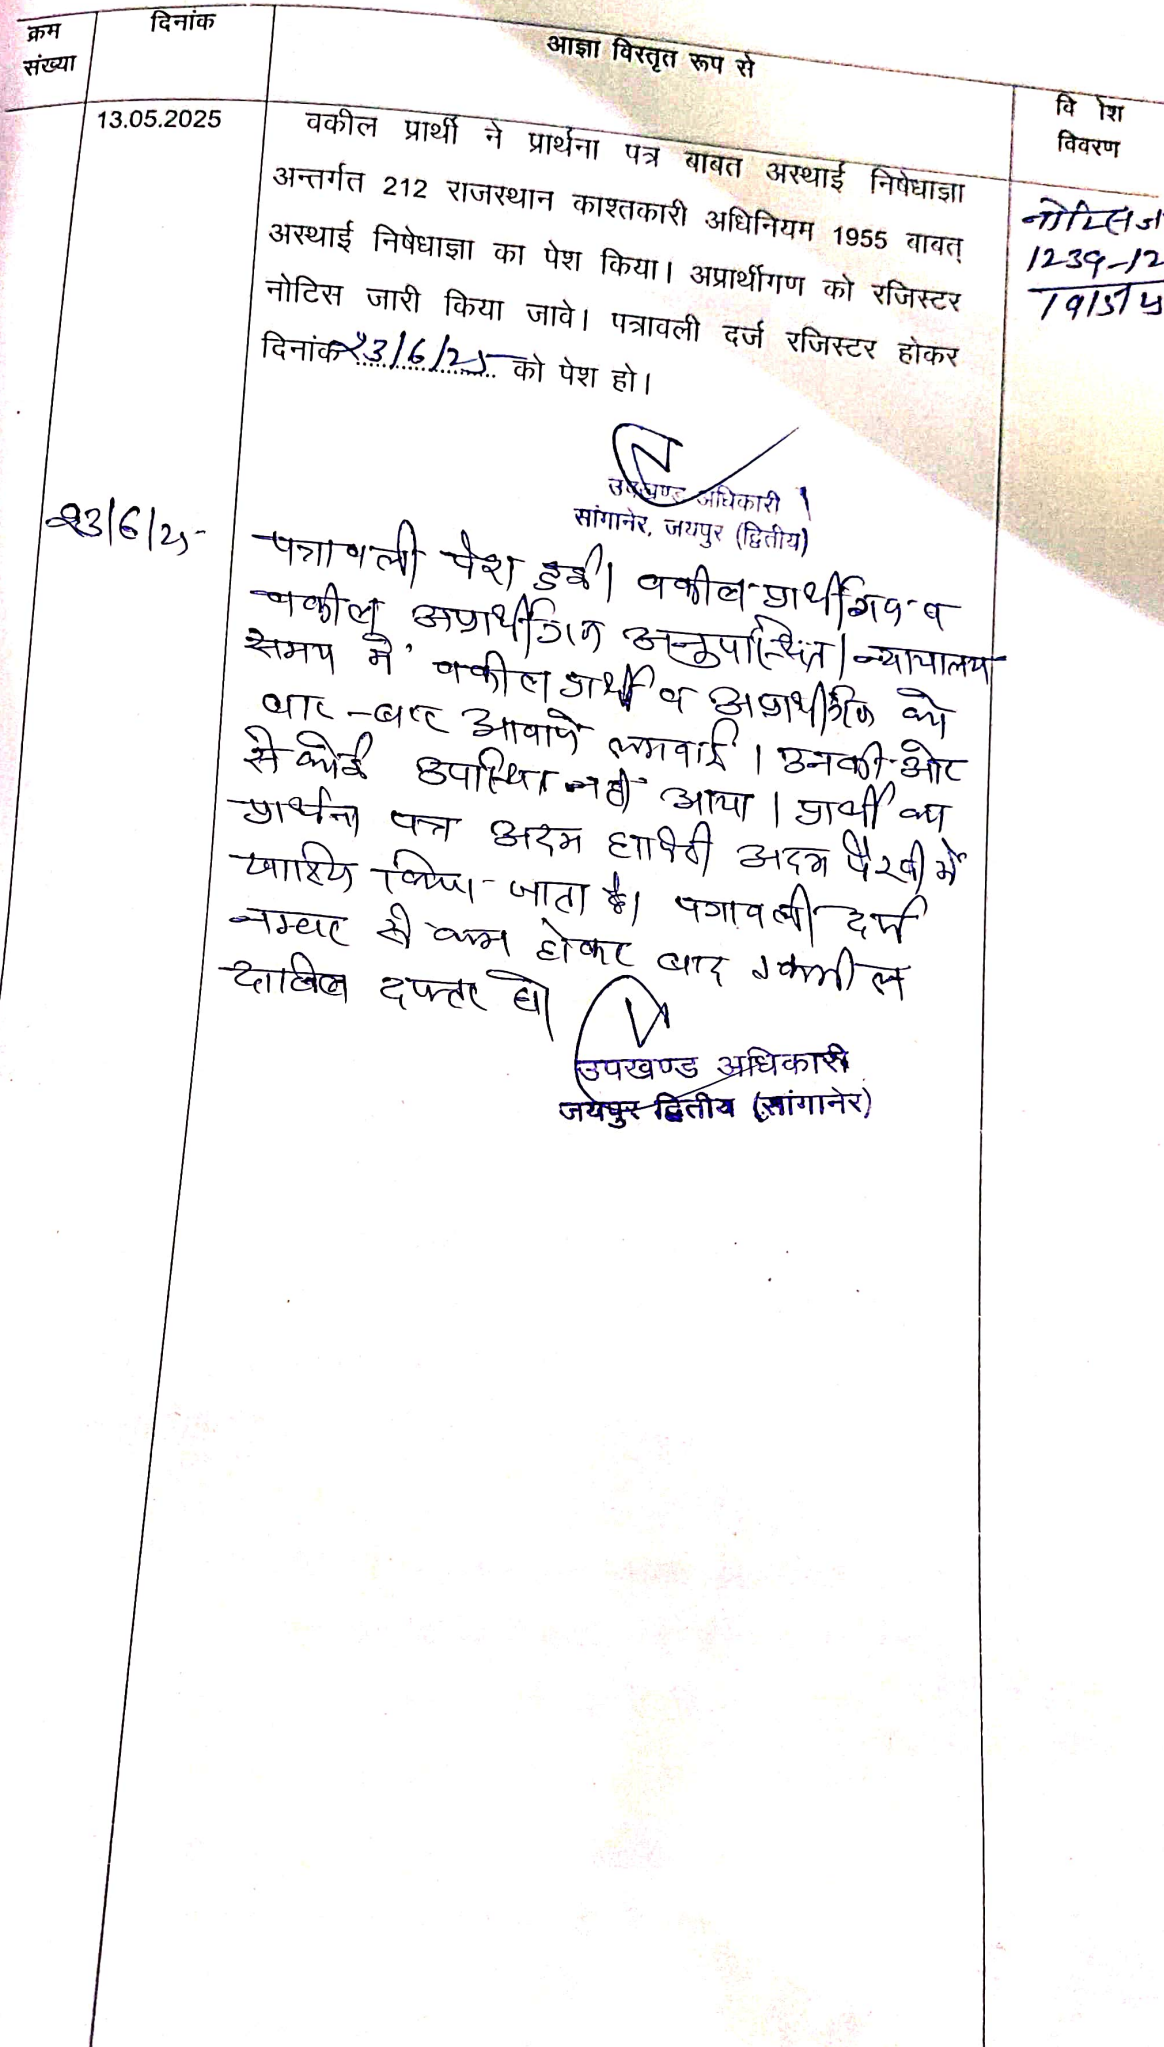 क्रम
संख्या
दिनांक
आज्ञा विस्तृत रूप से
वि ोश
विवरण
13.05.2025
वकील प्रार्थी ने प्रार्थना पत्र बाबत अस्थाई निषेधाज्ञा
अन्तर्गत 212 राजस्थान काश्तकारी अधिनियम 1955 बाबत्
अस्थाई निषेधाज्ञा का पेश किया। अप्रार्थीगण को रजिस्टर
नोटिस जारी किया जावे। पत्रावली दर्ज रजिस्टर होकर
दिनांक 23/6/25 को पेश हो।
नोटिस
1239-12
19/5/
उपखण्ड अधिकारी
सांगानेर, जयपुर (द्वितीय)
23/6/25
पत्रावली पेश हुई। वकील प्रार्थीगण व
वकील अप्रार्थीगण अनुपस्थित। न्यायालय
समय में वकील प्रार्थी व अप्रार्थीगण को
बार-बार आवाजे लगवाई। उनकी ओर
से कोई उपस्थित नहीं आया। प्रार्थी का
प्रार्थना पत्र अदम हाजिरी अदम पैरवी में
खारिज किया जाता है। पत्रावली दर्ज
नम्बर से कम होकर बाद तकमील
दाखिल दफ्तर हो।
उपखण्ड अधिकारी
जयपुर द्वितीय (सांगानेर)